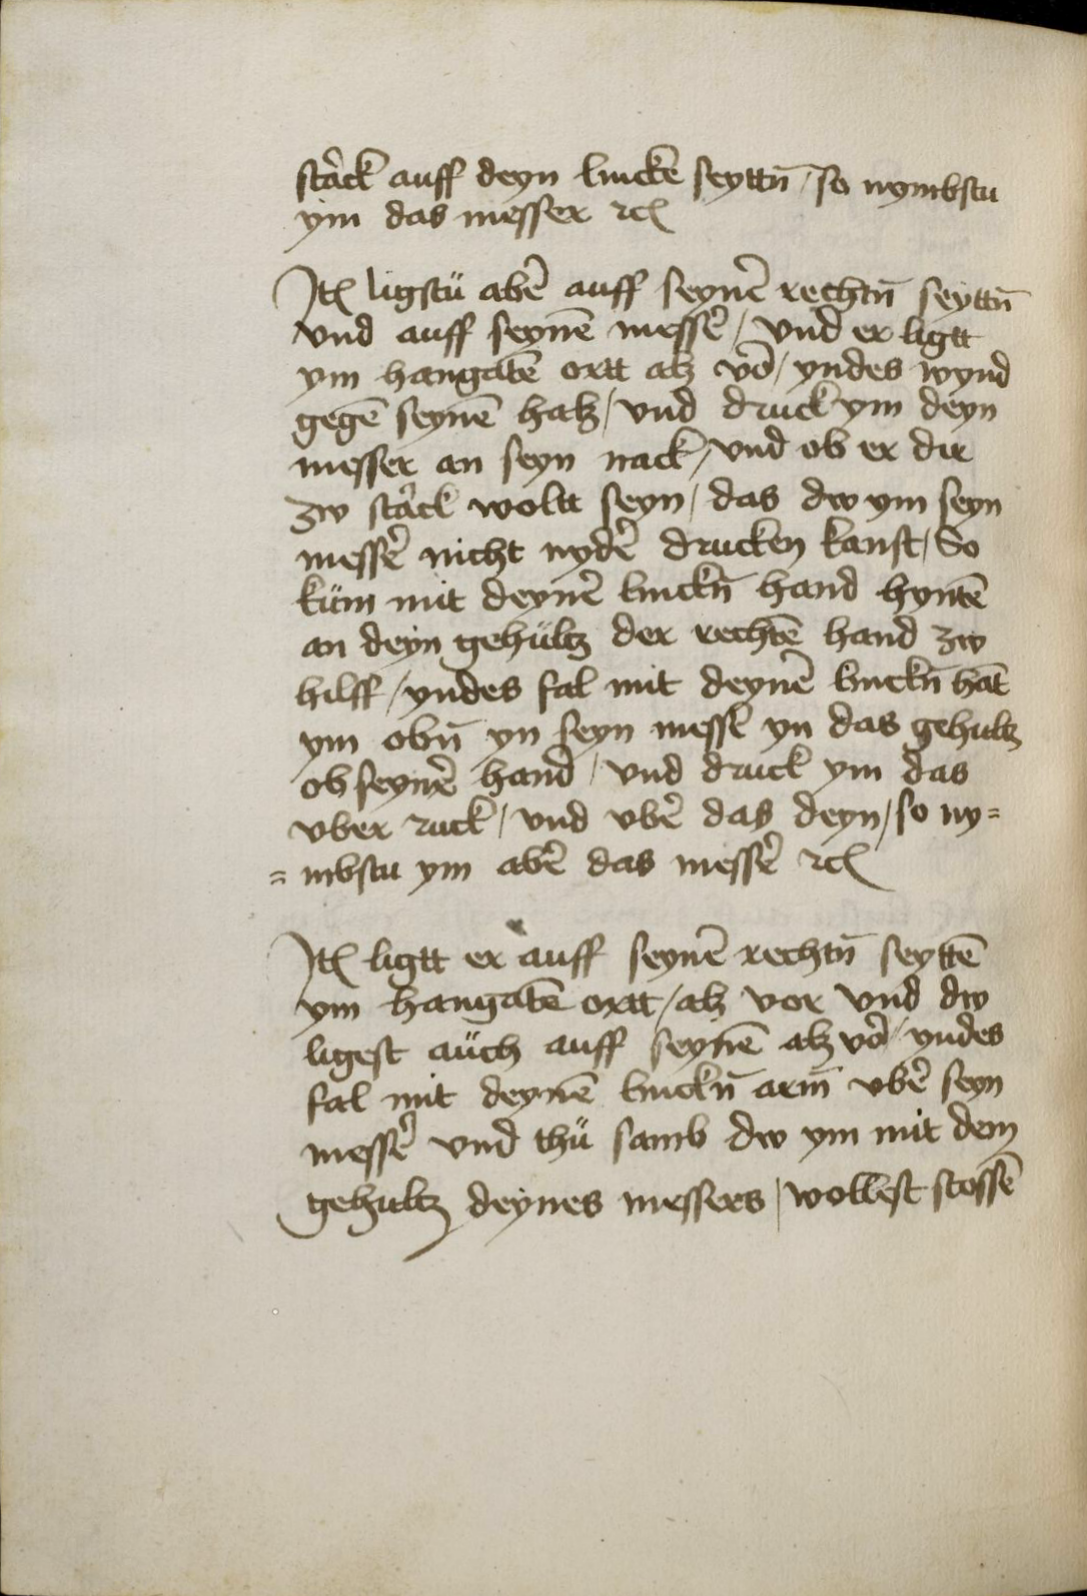 starck auff deyn lincke seyttn̄ / so nymbstu
ym das messer ⁊c̃
Itꝫ ligstü abe᷑ auff seyne᷑ rechtn̄ seyttn̄
vnd auff seynē messe᷑ / vnd er ligtt
ym hangatē ortt alꝫ vo᷑ / yndes wynd
gegē seynē halꝫ / vnd druck ym deyn
messer an seyn nack / vnd ob er dir
zw starck woltt seyn / das dw ym seyn
messe᷑ nicht nyde᷑ drucken kanst / So
küm mit deyne᷑ linckn̄ hand hyntē
an deyn gehültz der rechtē hand zw
hilff / yndes fal mit deyne᷑ linckn̄ hāt
ym obn̄ yn seyn messe᷑ yn das gehultz
ob seyne᷑ hand / vnd druck ym das
vber ruck / vnd vbe᷑ das deyn / so ny=
=mbstu ym abe᷑ das messe᷑ ⁊c̃
Itꝫ ligtt er auff seyne᷑ rechtn̄ seyttē
ym hangatē ortt / alꝫ vor vnd dw
ligest aüch auff seynē alꝫ vo᷑ / yndes
fal mit deynē linckn̄ arm̄ vbe᷑ seyn
messe᷑ vnd thü samb dw ym mit dem
gehultz deynes messers / wollest stossē